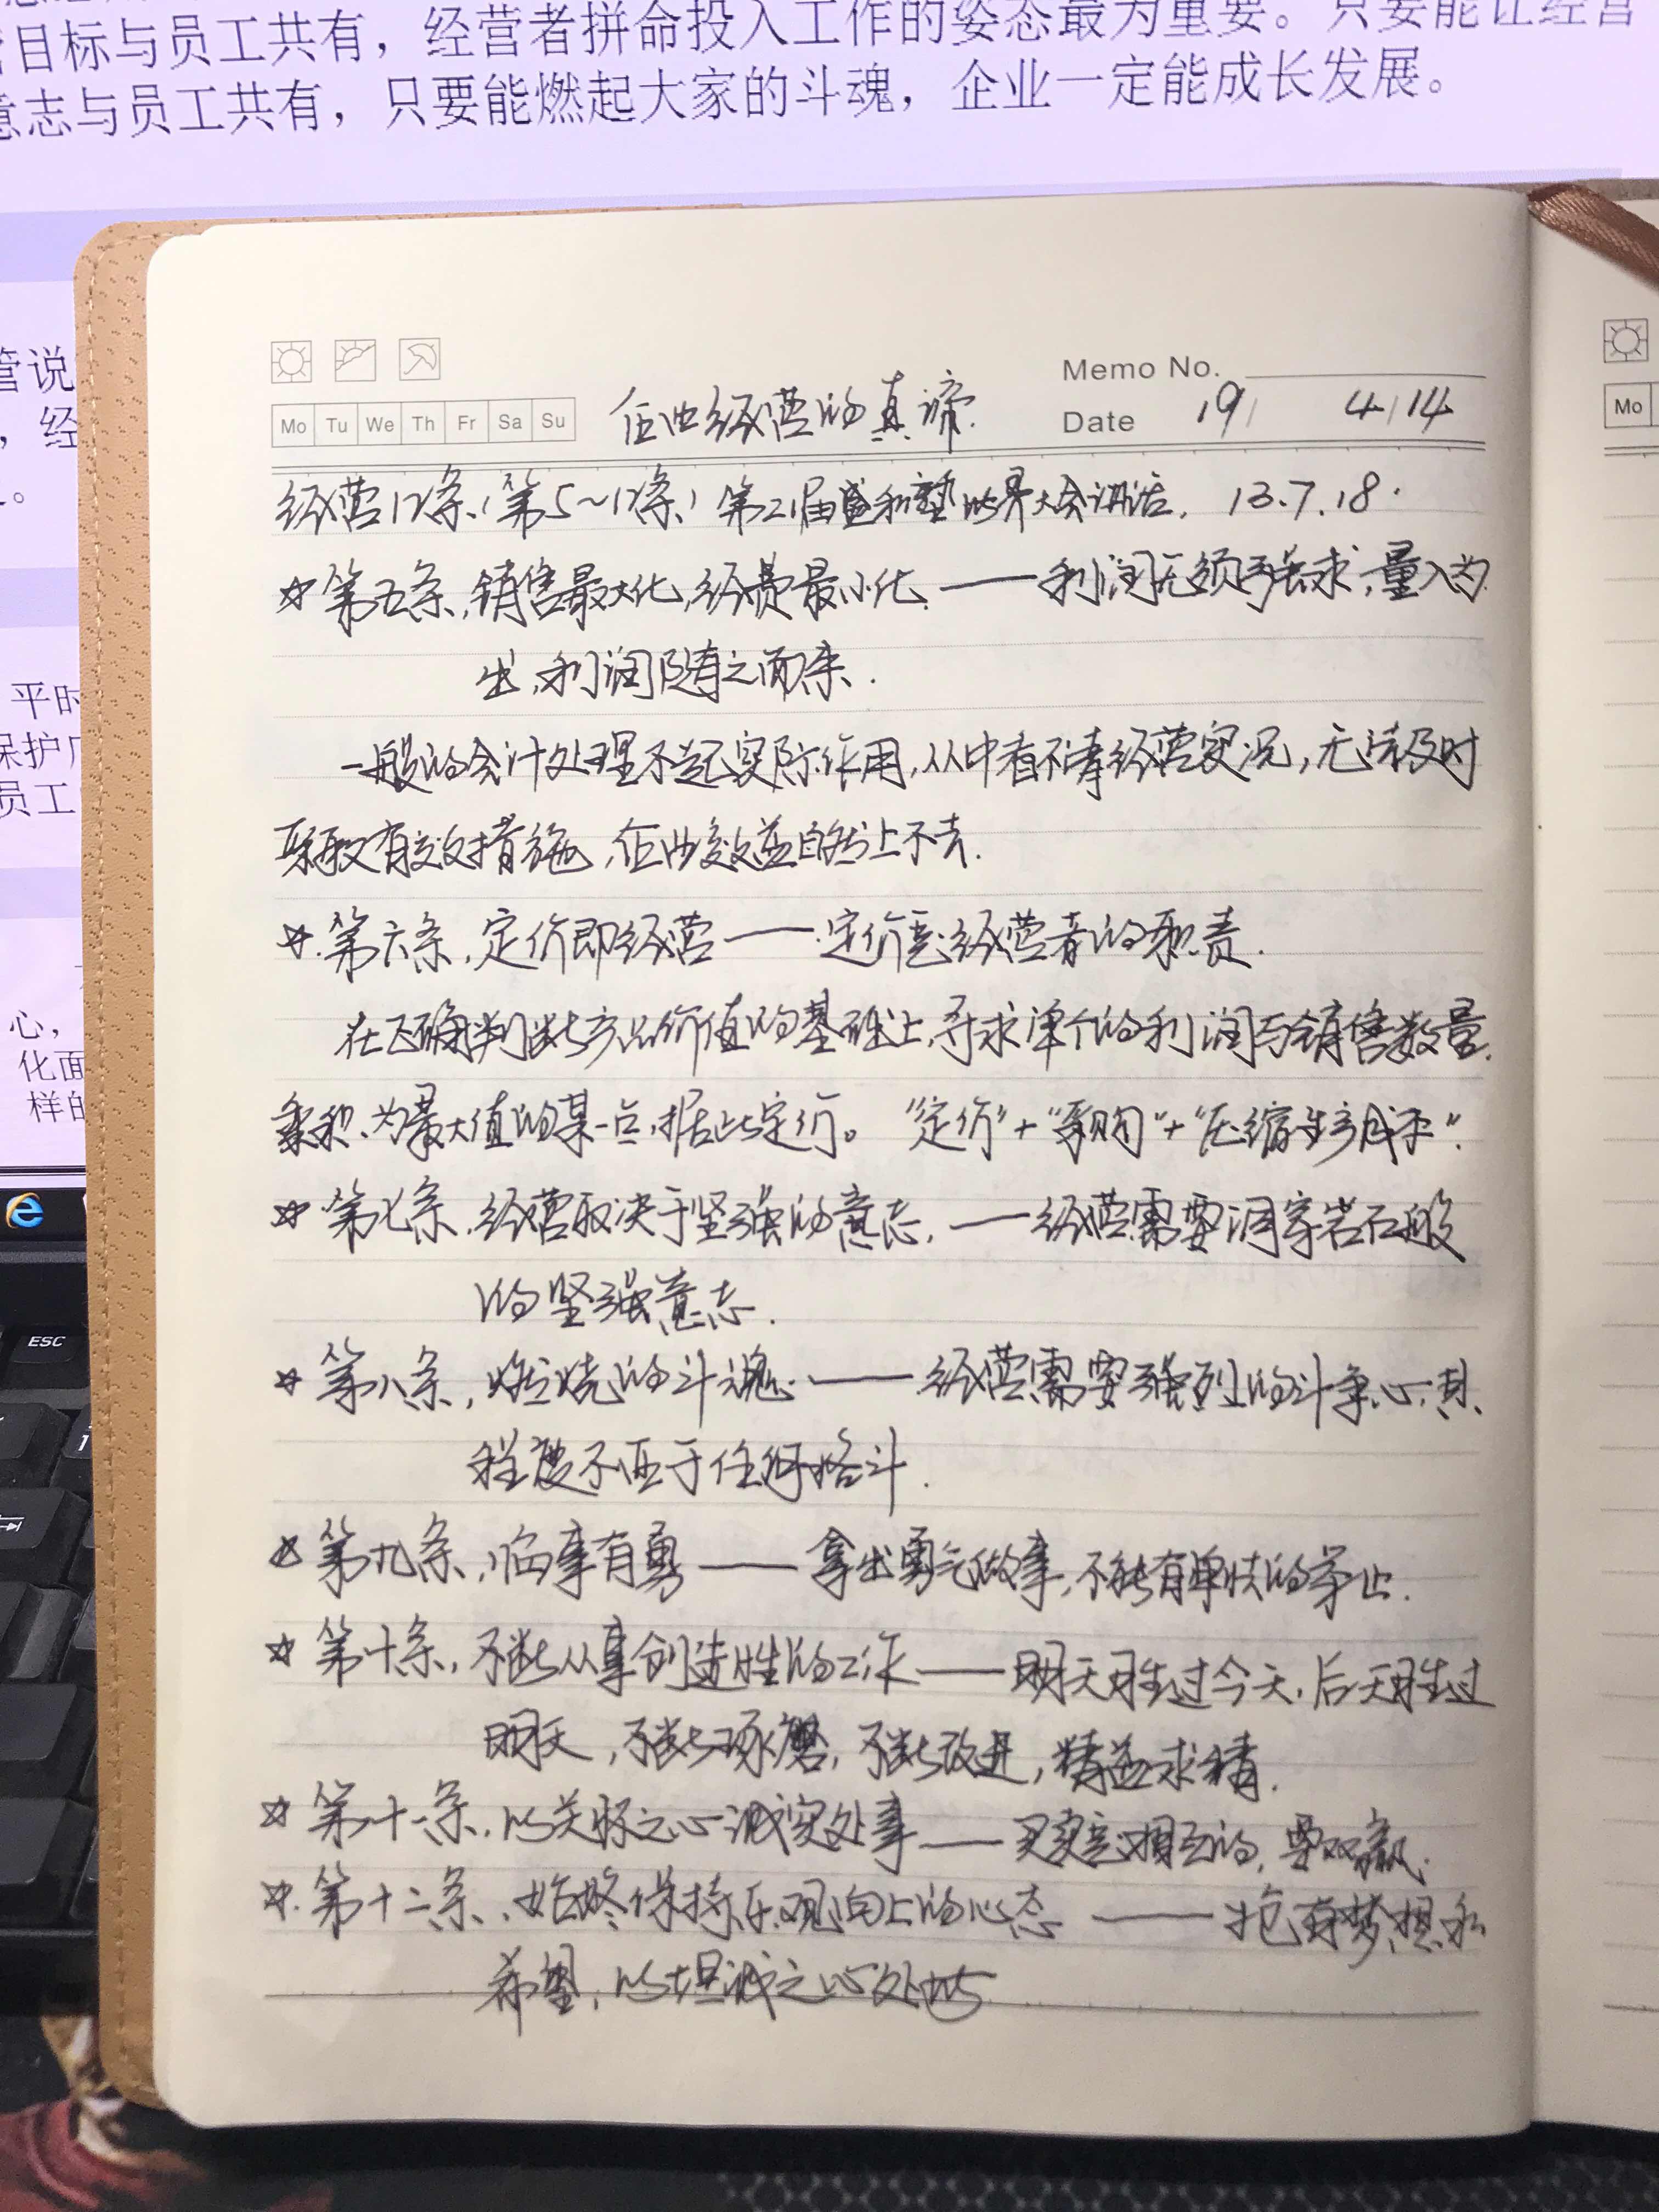 目标与员工共有，经营者拼命投入工作的姿态最为重要。只要能让经营
意志与员工共有，只要能燃起大家的斗魂，企业一定能成长发展。
管说
，经
平时
保护
员工
心，
化面
样的
ESC
Memo No.
Mo Tu We Th Fr Sa Su
企业经营的真谛.
Date 19/ 4/14
Mo
经营12条(第5~12条) 第21届盛和塾世界大会讲话. 13.7.18.
☆第五条,销售最大化,经费最小化.——利润无须强求,量入为
出,利润随之而来.
一般的会计处理不起实际作用,从中看不清经营实况,无法及时
采取有效措施,企业效益自然上不去.
☆.第六条,定价即经营——定价是经营者的职责.
在正确判断产品价值的基础上,寻求单个的利润与销售数量.
乘积为最大值的某一点,据此定价。 "定价"+"采购"+"压缩生产成本".
☆第七条,经营取决于坚强的意志,——经营需要洞穿岩石般
的坚强意志.
☆第八条,燃烧的斗魂.——经营需要强烈的斗争心,其
程度不亚于任何格斗.
☆第九条,临事有勇——拿出勇气做事,不能有卑怯的举止.
☆第十条,不断从事创造性的工作——明天胜过今天,后天胜过
明天,不断琢磨,不断改进,精益求精.
☆第十一条,以关怀之心诚实处事——买卖是相互的,要双赢.
☆.第十二条、始终保持乐观向上的心态——抱有梦想和
希望,以坦诚之心处世